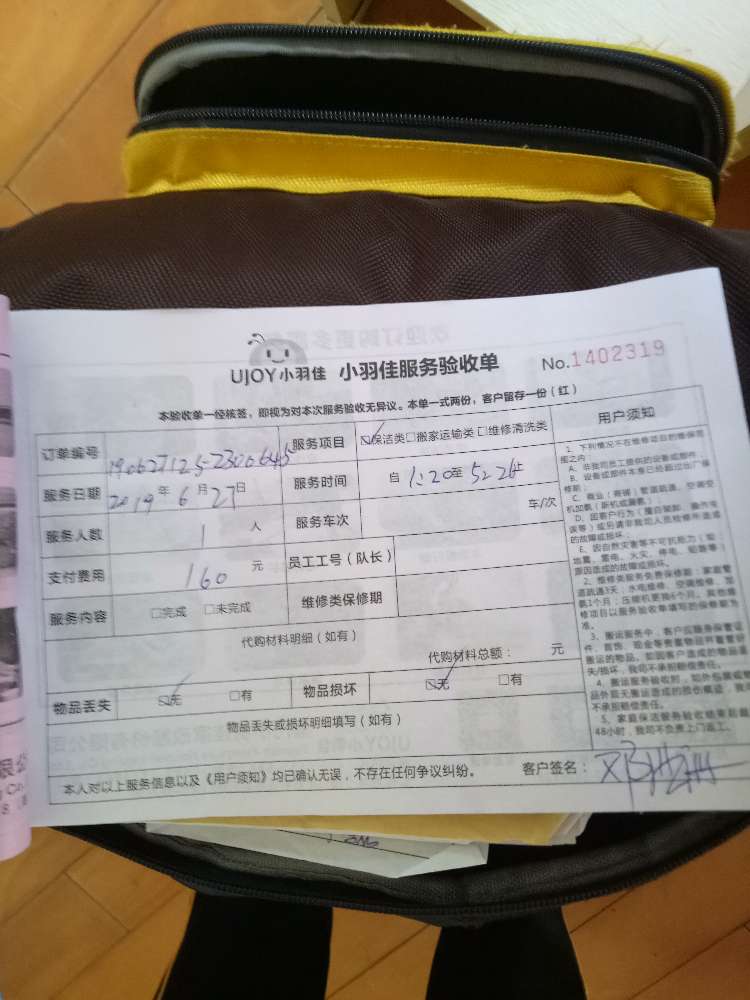 UJOY小羽佳 小羽佳服务验收单 No.1402319
本验收单一经核签，即视为对本次服务验收无异议。本单一式两份，客户留存一份（红）
订单编号 服务项目 ☑保洁类□搬家运输类□维修清洗类 用户须知
服务日期 2019年6月27日 服务时间 自1:20至5:2 止
服务人数 1 人 服务车次 车/次
支付费用 160 元 员工工号（队长）
服务内容 □完成 □未完成 维修类保修期
代购材料明细（如有）
代购材料总额： 元
物品丢失 ☑无 □有 物品损坏 ☑无 □有
物品丢失或损坏明细填写（如有）
本人对以上服务信息以及《用户须知》均已确认无误，不存在任何争议纠纷。 客户签名：
1、下列情况不在维修项目的维保范
围之内：
A、非我司员工提供的设备或部件；
B、设备或部件本身已经超过出厂保
修期；
C、商业（商铺）管道疏通、空调安
机加氟（新机或漏氟）；
D、因客户行为
的故障或损坏；
E、因自然灾害等不可抗力（如：
地震、雷电、火灾、停电、
原因造成的故障或损坏。
2、维修类服务免费保修期：家庭管
道疏通3天；水电维修、空调维修、加
氟1个月；压缩机更换6个月。其他维
修项目以服务验收单填写的保修期为
准。
3、搬运服务中，客户应
件、首饰、现金等贵重物品
搬运的物品，如因客户造成的物品丢
失/损坏，我司不承担赔偿责任。
4、搬运服务验收时，如外包装或物
品外因无搬运造成的损伤痕迹，我司
不承担赔偿责任。
5、家庭保洁服务验收结束后超
48小时，我司不负责上门返工。